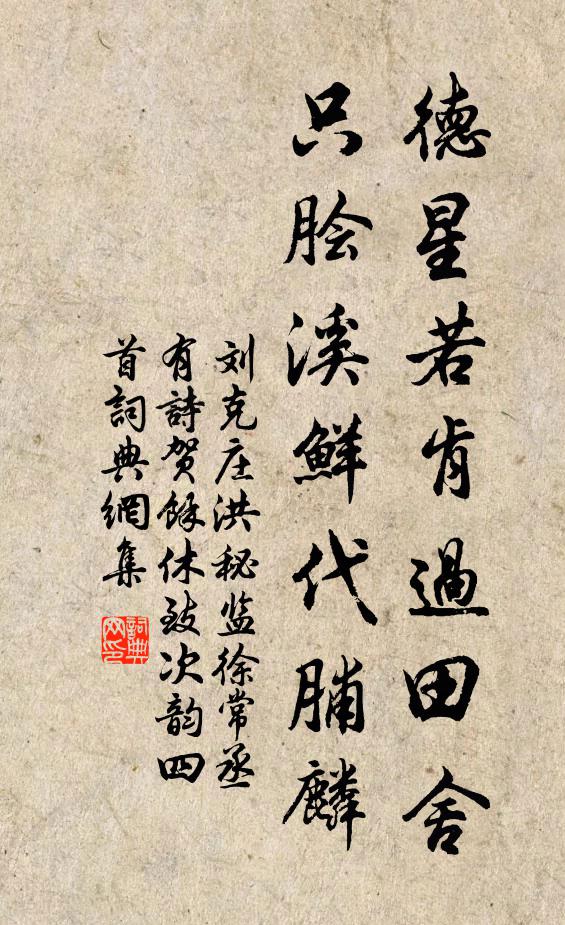 德星若肯過田舍
只脍溪鮮代脯麟
刘克庄洪秘监徐常丞
有詩贺餘休致次韵四
首詞典網集
詞典
网印